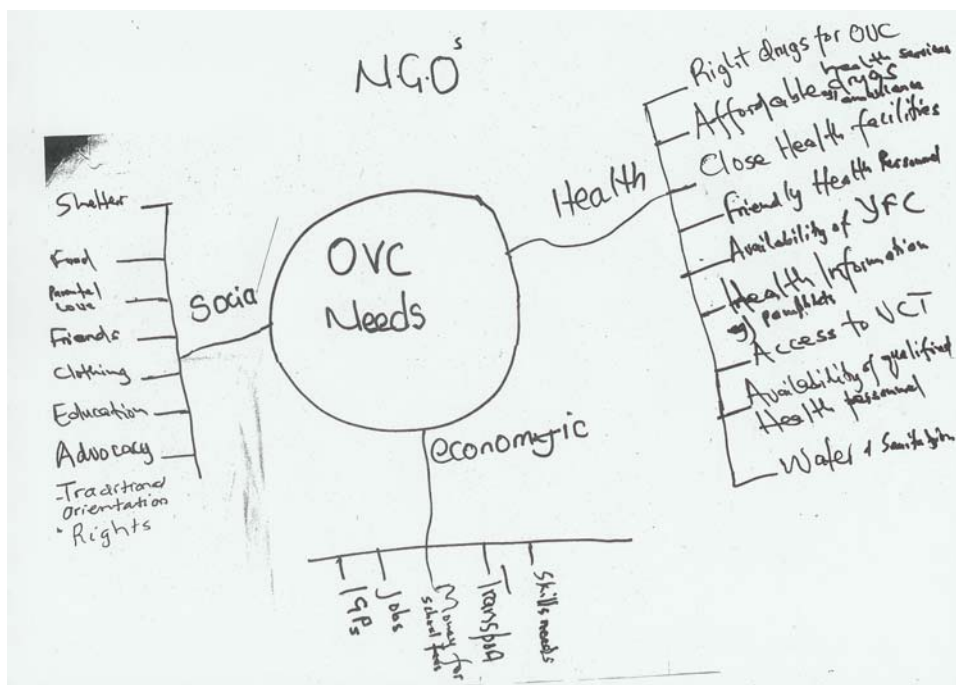 NGOs
OVC
Needs
Socia
Shelter
Food
Parental
Love
Friends
Clothing
Education
Advocacy
-Traditional
orientation
• Rights
Health
Right drugs for OVC
health services
Affordable drugs
eg ambulance
Close Health facilities
Friendly Health Personnel
Availability of YFC
Health Information
eg pamphlets
Access to VCT
Availability of qualified
Health personnel
Water & Sanitation
economic
IGPs
Jobs
Money for
school fees
Transport
Skills needs